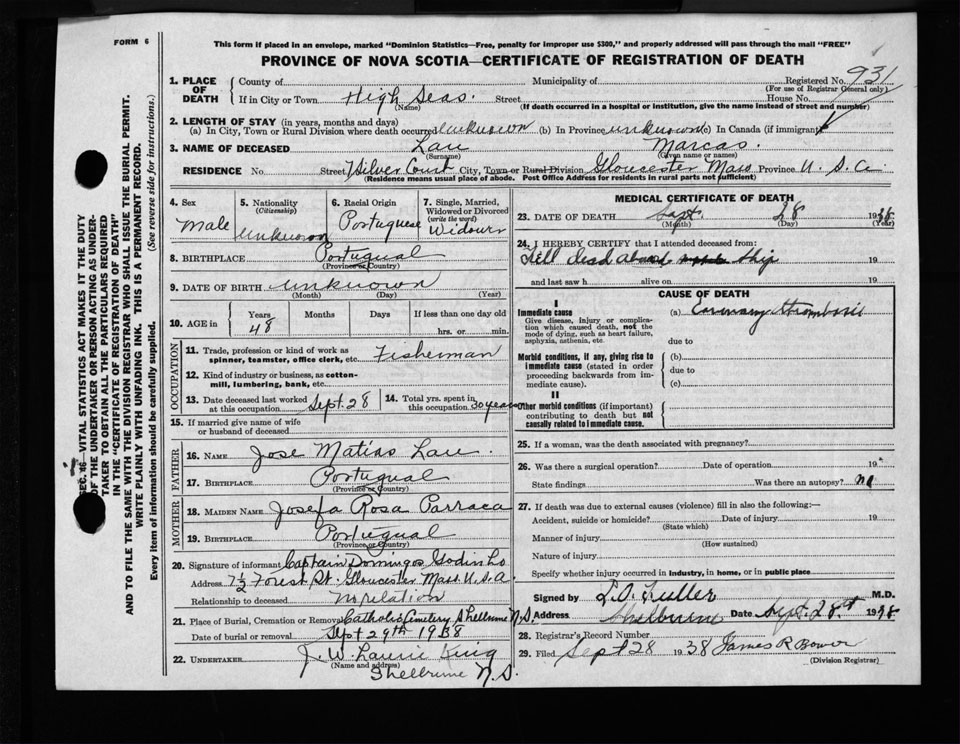 FORM 6
This form if placed in an envelope, marked "Dominion Statistics—Free, penalty for improper use $300," and properly addressed will pass through the mail "FREE"
PROVINCE OF NOVA SCOTIA—CERTIFICATE OF REGISTRATION OF DEATH
1. PLACE OF DEATH
County of Municipality of Registered No. 931
(For use of Registrar General only)
If in City or Town High Seas. Street House No.
(Name) (If death occurred in a hospital or institution, give the name instead of street and number)
2. LENGTH OF STAY (in years, months and days)
(a) In City, Town or Rural Division where death occurred unknown (b) In Province unknown (c) In Canada (if immigrant)
3. NAME OF DECEASED Lau Marcas.
(Surname) (Given name or names)
RESIDENCE No. Street 7 Silver Court City, Town or Rural Division Gloucester Mass Province U.S.A
(Residence means usual place of abode. Post Office Address for residents in rural parts not sufficient)
4. Sex
Male
5. Nationality
(Citizenship)
unknown
6. Racial Origin
Portuguese
7. Single, Married, Widowed or Divorced
(write the word)
Widower
8. BIRTHPLACE Portugual
(Province or Country)
9. DATE OF BIRTH unknown
(Month) (Day) (Year)
10. AGE in Years Months Days If less than one day old
48 hrs. or min.
OCCUPATION
11. Trade, profession or kind of work as spinner, teamster, office clerk, etc. Fisherman
12. Kind of industry or business, as cotton-mill, lumbering, bank, etc.
13. Date deceased last worked at this occupation Sept. 28
14. Total yrs. spent in this occupation 30 years
15. If married give name of wife or husband of deceased
FATHER
16. Name Jose Matias Lau.
17. Birthplace Portugual
(Province or Country)
MOTHER
18. Maiden Name Josefa Rosa Parraca
19. Birthplace Portugual
(Province or Country)
20. Signature of informant Captain Domingos Godinho
Address 7½ Forest St. Gloucester Mass. U.S.A.
Relationship to deceased No relation
21. Place of Burial, Cremation or Removal Catholic Cemetery Shelburne N.S.
Date of burial or removal Sept 29th 1938
22. Undertaker J. W. Laurie King
(Name and address)
Shelburne N.S.
MEDICAL CERTIFICATE OF DEATH
23. DATE OF DEATH Sept. 28 1938
(Month) (Day) (Year)
24. I HEREBY CERTIFY that I attended deceased from:
Fell dead aboard ship 19
and last saw h alive on 19
CAUSE OF DEATH
I
Immediate cause
Give disease, injury or complication which caused death, not the mode of dying, such as heart failure, asphyxia, asthenia, etc.
(a) Coronary Thrombosis
due to
Morbid conditions, if any, giving rise to immediate cause (stated in order proceeding backwards from immediate cause).
(b)
due to
(c)
II
Other morbid conditions (if important) contributing to death but not causally related to immediate cause.
25. If a woman, was the death associated with pregnancy?
26. Was there a surgical operation? Date of operation 19
State findings Was there an autopsy? no
27. If death was due to external causes (violence) fill in also the following:—
Accident, suicide or homicide? Date of injury 19
(State which)
Manner of injury
(How sustained)
Nature of injury
Specify whether injury occurred in industry, in home, or in public place
Signed by L.O. Fuller M.D.
Address Shelburne Date Sept. 28th 1938
28. Registrar's Record Number
29. Filed Sept 28 1938 James R Bower
(Division Registrar)
SEC. 16—VITAL STATISTICS ACT MAKES IT THE DUTY
OF THE UNDERTAKER OR PERSON ACTING AS UNDER-
TAKER TO OBTAIN ALL THE PARTICULARS REQUIRED
IN THE "CERTIFICATE OF REGISTRATION OF DEATH"
AND TO FILE THE SAME WITH THE DIVISION REGISTRAR WHO SHALL ISSUE THE BURIAL PERMIT.
WRITE PLAINLY WITH UNFADING INK. THIS IS A PERMANENT RECORD.
Every item of information should be carefully supplied. (See reverse side for instructions.)